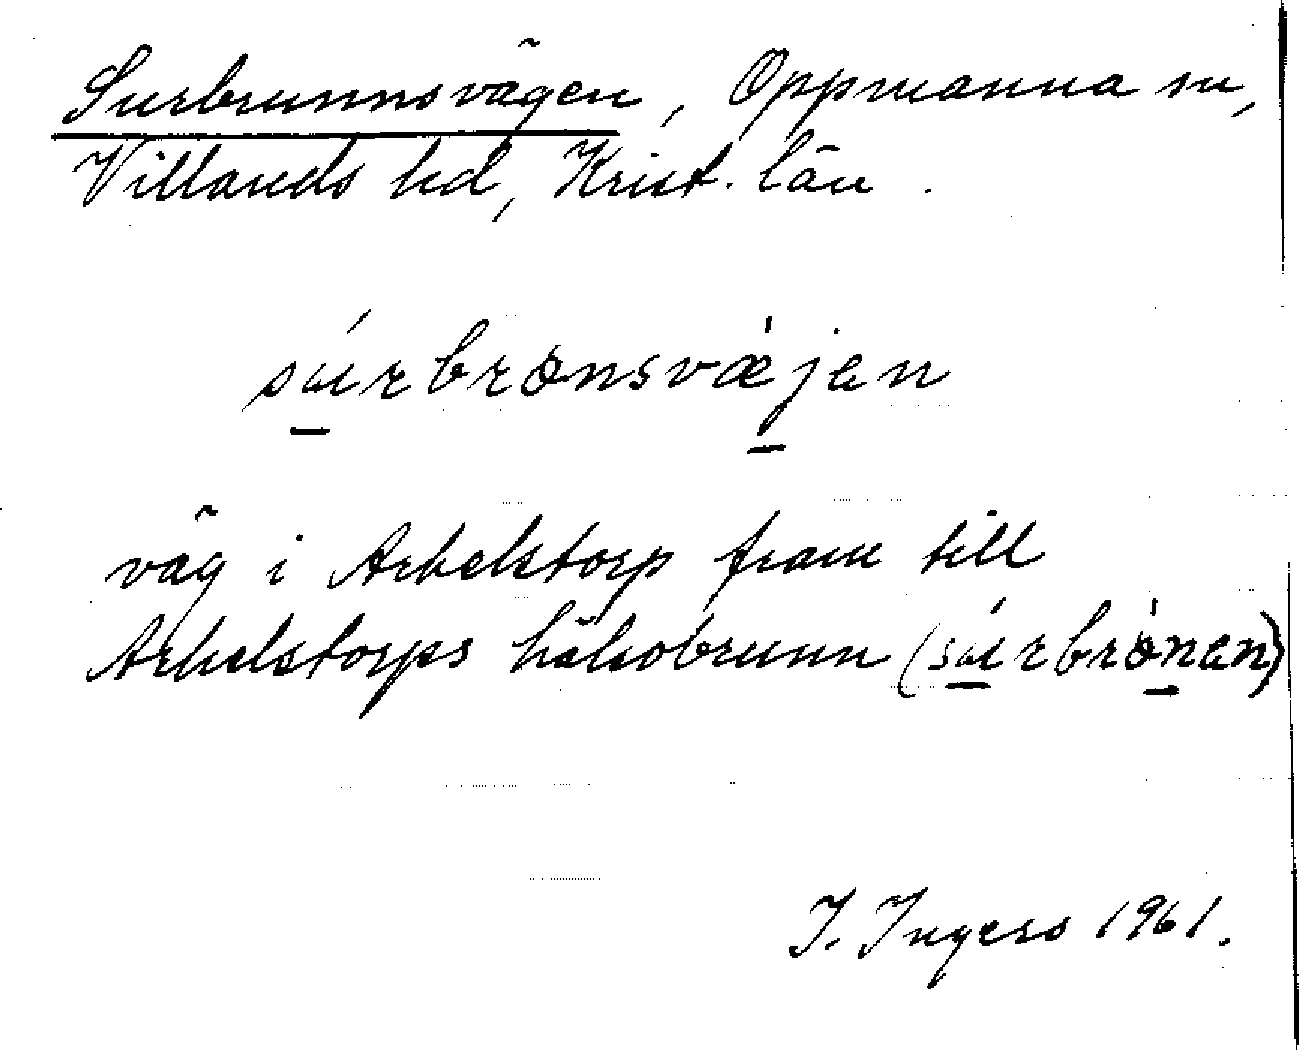 Surbrunnsvägen, Oppmanna sn,
Villands hd, Krist. län.
súrbrønsvæ̀jen
väg i Arkelstorp fram till
Arkelstorps hälsobrunn (súrbrø̀nen)
I. Ingers 1961.